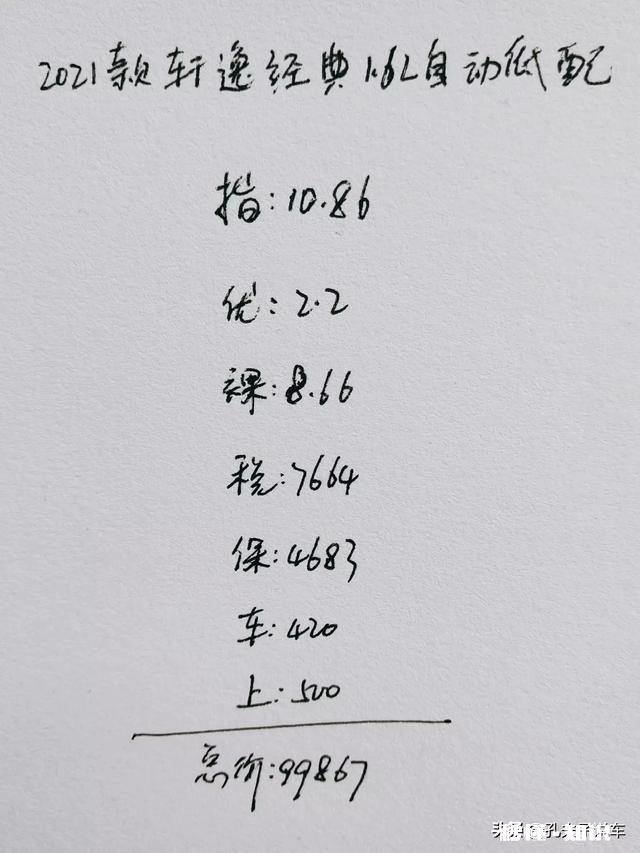 2021款轩逸经典1.6L自动低配
指:10.86
优:2.2
裸:8.66
税:7664
保:4683
车:420
上:500
总价:99867
头条@孔夫子说车